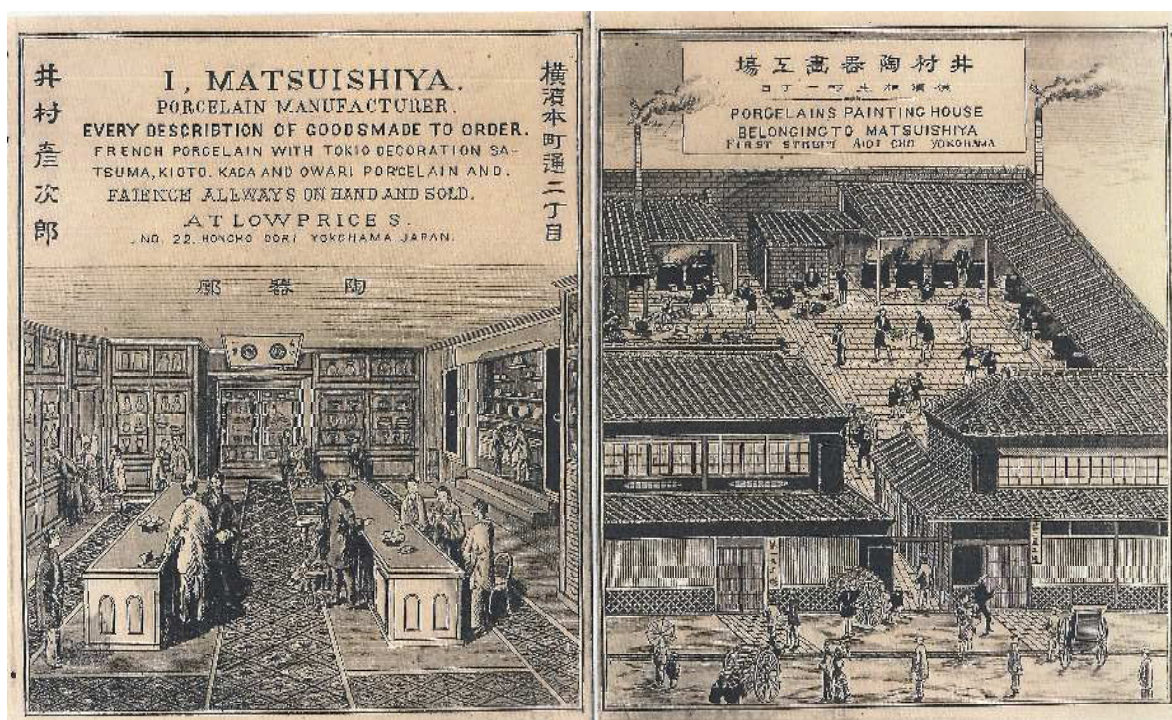 井村彦次郎
I, MATSUISHIYA.
PORCELAIN MANUFACTURER.
EVERY DESCRIPTION OF GOODSMADE TO ORDER.
FRENCH PORCELAIN WITH TOKIO DECORATION SA-
TSUMA, KIOTO. KAGA AND OWARI PORCELAIN AND.
FAIENCE ALLWAYS ON HAND AND SOLD.
AT LOW PRICES.
NO. 22. HONCHO DORI YOKOHAMA JAPAN.
横濱本町通二丁目
陶器
井村陶器畫工場
横濱相生町一丁目
PORCELAINS PAINTING HOUSE
BELONGING TO MATSUISHIYA
FIRST STREET AIOI CHO YOKOHAMA